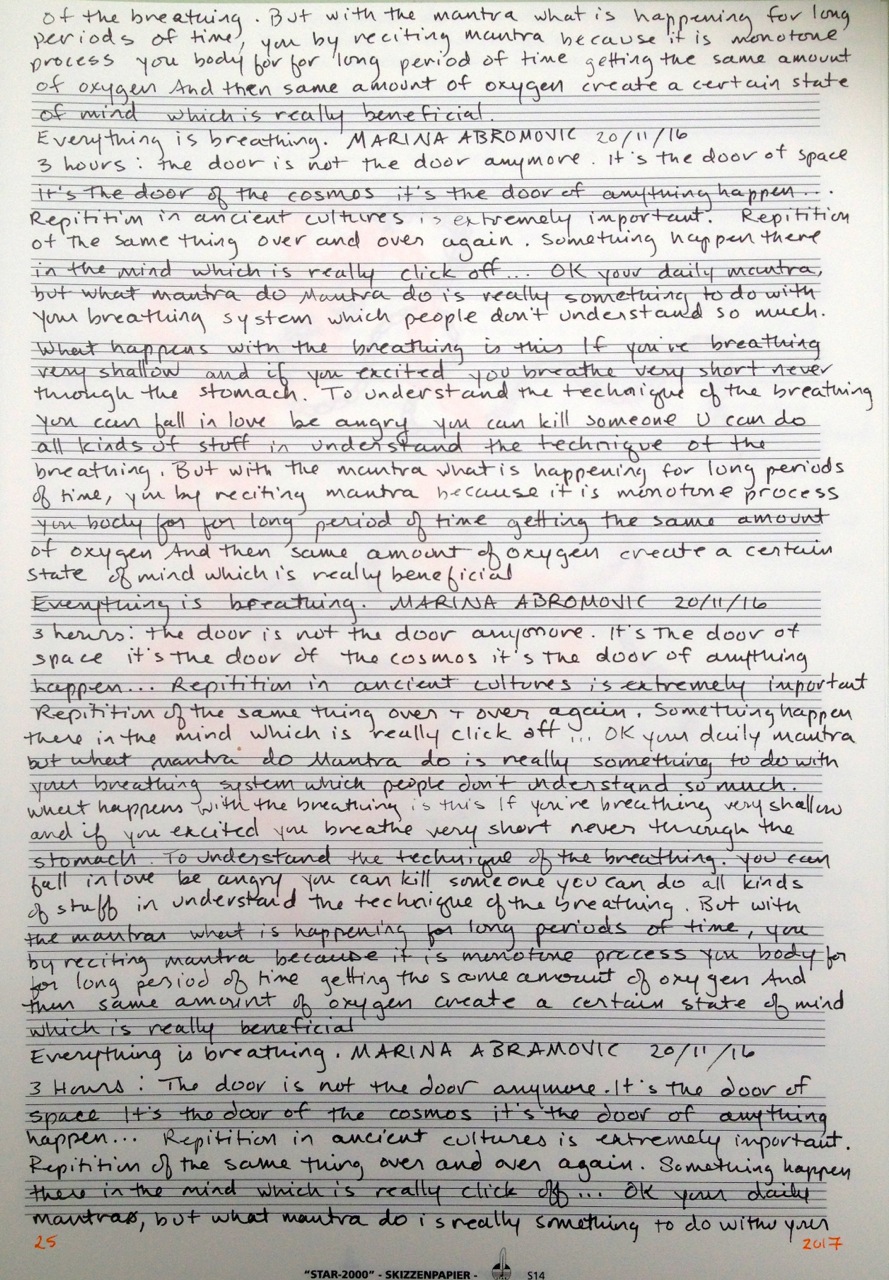 of the breathing. But with the mantra what is happening for long
periods of time, you by reciting mantra because it is monotone
process you body for for long period of time getting the same amount
of oxygen And then same amount of oxygen create a certain state
of mind which is really beneficial.
Everything is breathing. MARINA ABROMOVIC 20/11/16
3 hours: the door is not the door anymore. It's the door of space
it's the door of the cosmos it's the door of anything happen...
Repitition in ancient cultures is extremely important. Repitition
of the same thing over and over again. Something happen there
in the mind which is really click off... OK your daily mantra,
but what mantra do Mantra do is really something to do with
your breathing system which people don't understand so much.
What happens with the breathing is this If you're breathing
very shallow and if you excited you breathe very short never
through the stomach. To understand the technique of the breathing
you can fall in love be angry you can kill someone U can do
all kinds of stuff in understand the technique of the
breathing. But with the mantra what is happening for long periods
of time, you by reciting mantra because it is monotone process
you body for for long period of time getting the same amount
of oxygen And then same amount of oxygen create a certain
state of mind which is really beneficial
Everything is breathing. MARINA ABROMOVIC 20/11/16
3 hours: the door is not the door anyomore. It's the door of
space it's the door of the cosmos it's the door of anything
happen... Repitition in ancient cultures is extremely important
Repitition of the same thing over + over again. Something happen
there in the mind which is really click off... OK your daily mantra
but what mantra do Mantra do is really something to do with
your breathing system which people don't understand so much.
What happens with the breathing is this If you're breathing very shallow
and if you excited you breathe very short never through the
stomach. To understand the technique of the breathing. you can
fall in love be angry you can kill someone you can do all kinds
of stuff in understand the technique of the breathing. But with
the mantras what is happening for long periods of time, you
by reciting mantra because it is monotone process you body for
for long period of time getting the same amount of oxygen And
then same amount of oxygen create a certain state of mind
which is really beneficial
Everything is breathing. MARINA ABRAMOVIC 20/11/16
3 Hours: The door is not the door anymore. It's the door of
space It's the door of the cosmos it's the door of anything
happen... Repitition in ancient cultures is extremely important.
Repitition of the same thing over and over again. Something happen
there in the mind which is really click off... OK your daily
mantras, but what mantra do is really something to do with your
25 2017
"STAR-2000" - SKIZZENPAPIER - S14